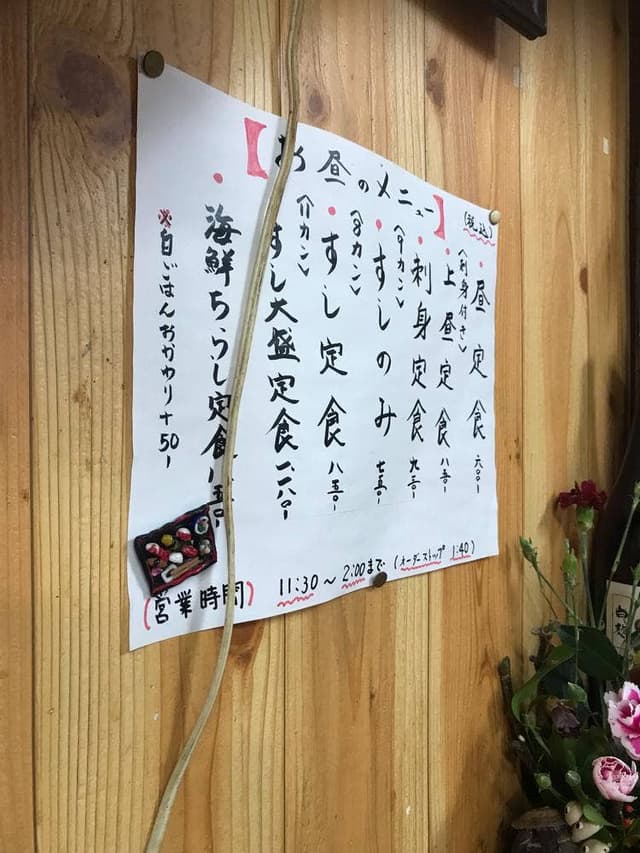 【お昼のメニュー】
(税込)
・昼定食 六〇〇-
<刺身付き>
・上昼定食 八五〇-
・刺身定食 九五〇-
<9カン>
・すしのみ 七五〇-
<8カン>
・すし定食 八五〇-
<11カン>
すし大盛定食 一、一八〇-
・海鮮ちらし定食
※白ごはんおかわり+50-
(営業時間) 11:30〜2:00まで (オーダーストップ 1:40)